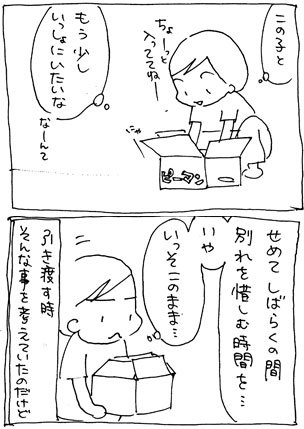 この子と
もう少し
いっしょにいたいな
なーんて
ちょーっと
入っててねー
にゃ
ピーマン
せめてしばらくの間
別れを惜しむ時間を…
いや
いっそこのまま…
引き渡す時
そんな事を考えていたのだけど